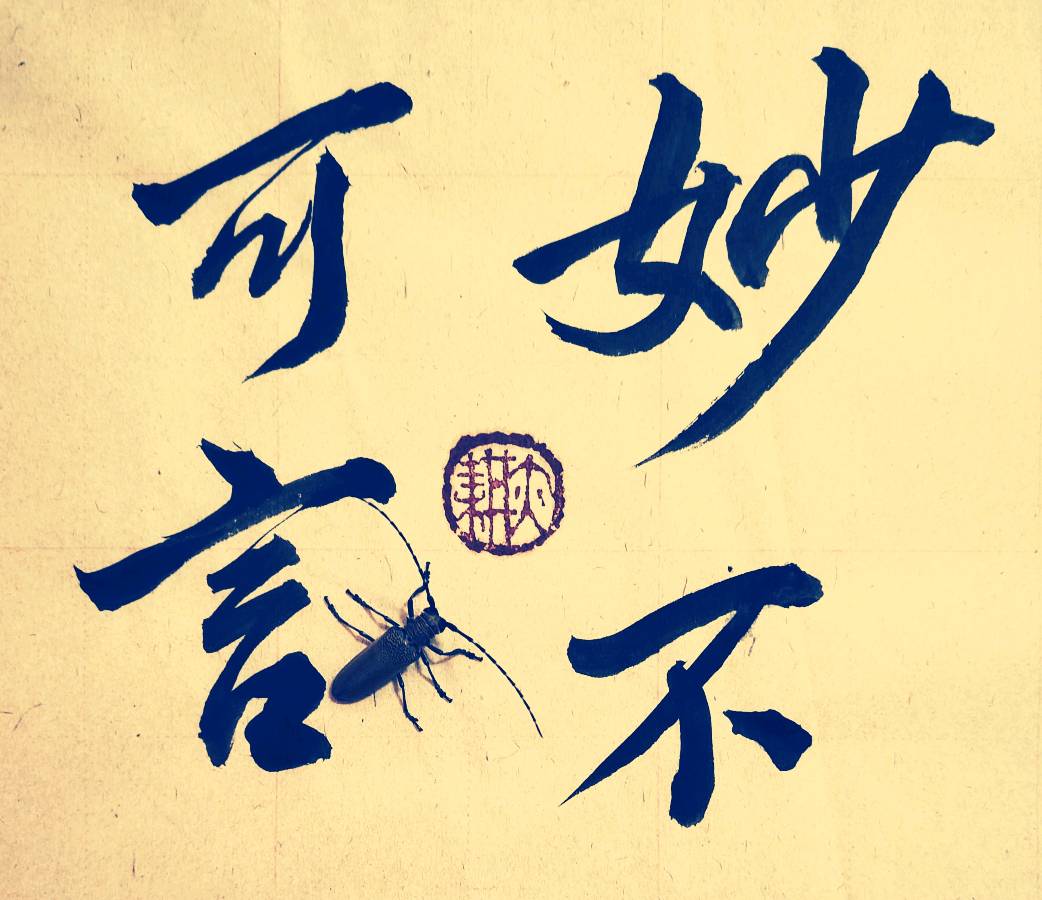 妙不
可言